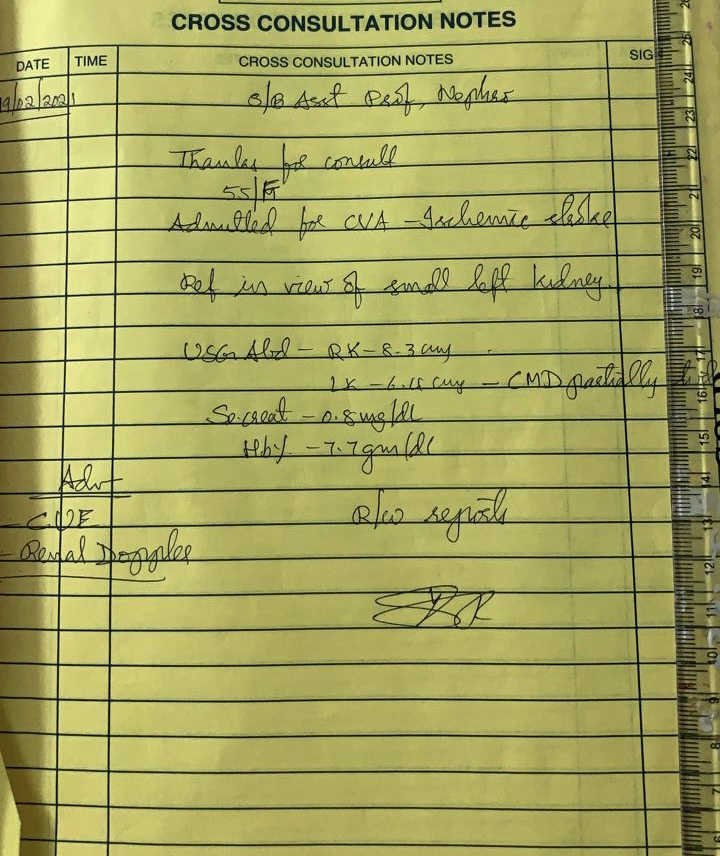 CROSS CONSULTATION NOTES
DATE TIME CROSS CONSULTATION NOTES SIG
19/02/2021 S/B Asst Prof, Nephro
Thanks for consult
55/F
Admitted for CVA - Ischemic stroke
Ref in view of small left kidney.
USG Abd - RK - 8.3 cm
LK - 6. cm - CMD partially
Se.creat - 0.8 mg/dl
Hb% - 7.7 gm/dl
Adv
- CUE R/w reports
- Renal Doppler